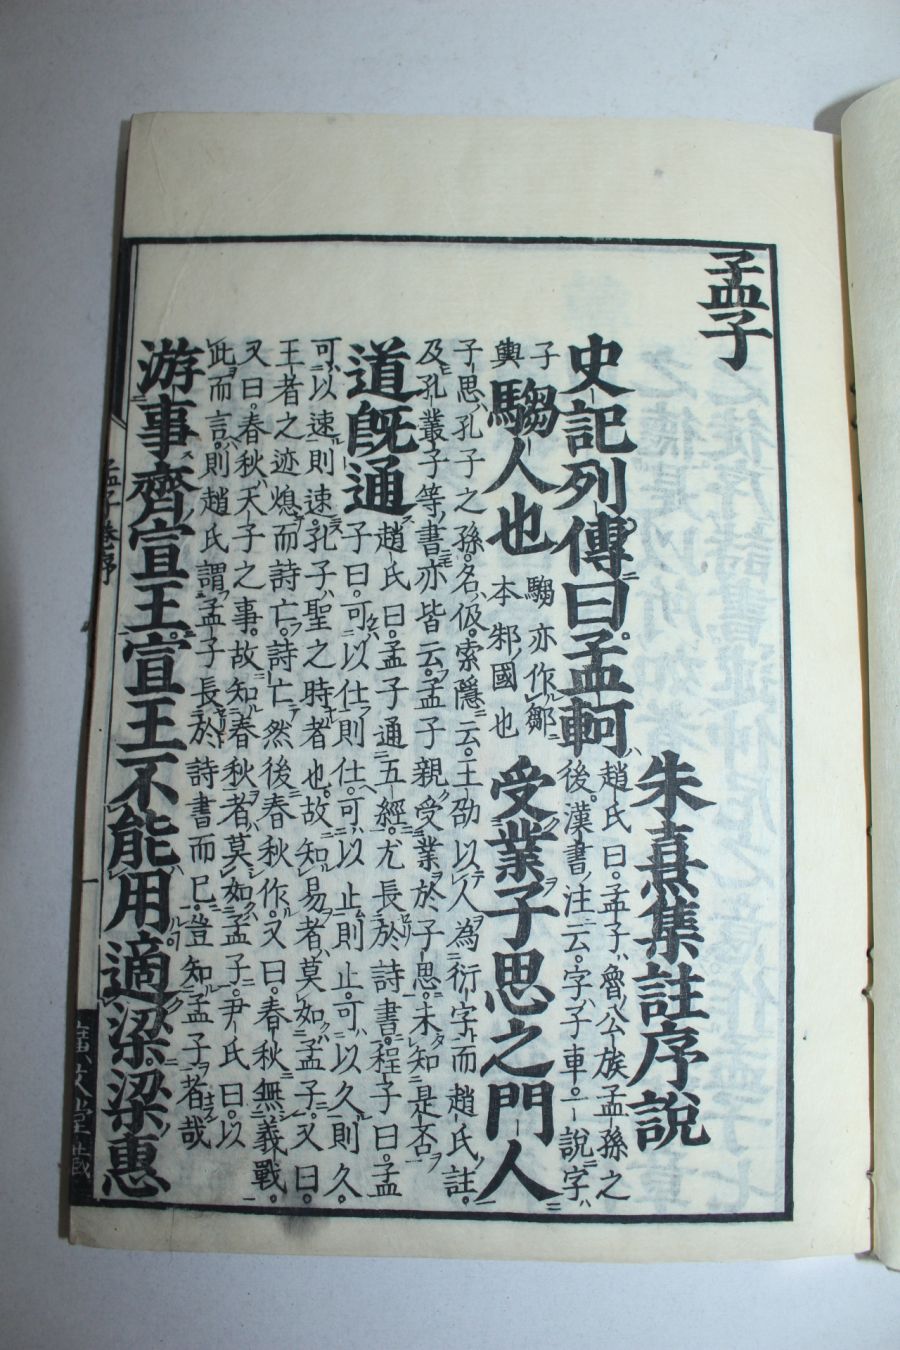 孟子
朱熹集註序說
史記列傳曰孟軻
趙氏曰孟子魯公族孟孫之
後漢書注云字子車一說字
子
輿
騶人也
騶亦作鄒
本邾國也
受業子思之門人
子思孔子之孫名伋索隱云王劭以人為衍字而趙氏註
及孔叢子等書亦皆云孟子親受業於子思未知是否
道既通
趙氏曰孟子通五經尤長於詩書程子曰孟
子曰可以仕則仕可以止則止可以久則久
可以速則速孔子聖之時者也故知易者莫如孟子又曰
王者之迹熄而詩亡詩亡然後春秋作又曰春秋無義戰
又曰春秋天子之事故知春秋者莫如孟子尹氏曰以
此而言則趙氏謂孟子長於詩書而已豈知孟子者哉
游事齊宣王宣王不能用適梁梁惠
孟子 卷序